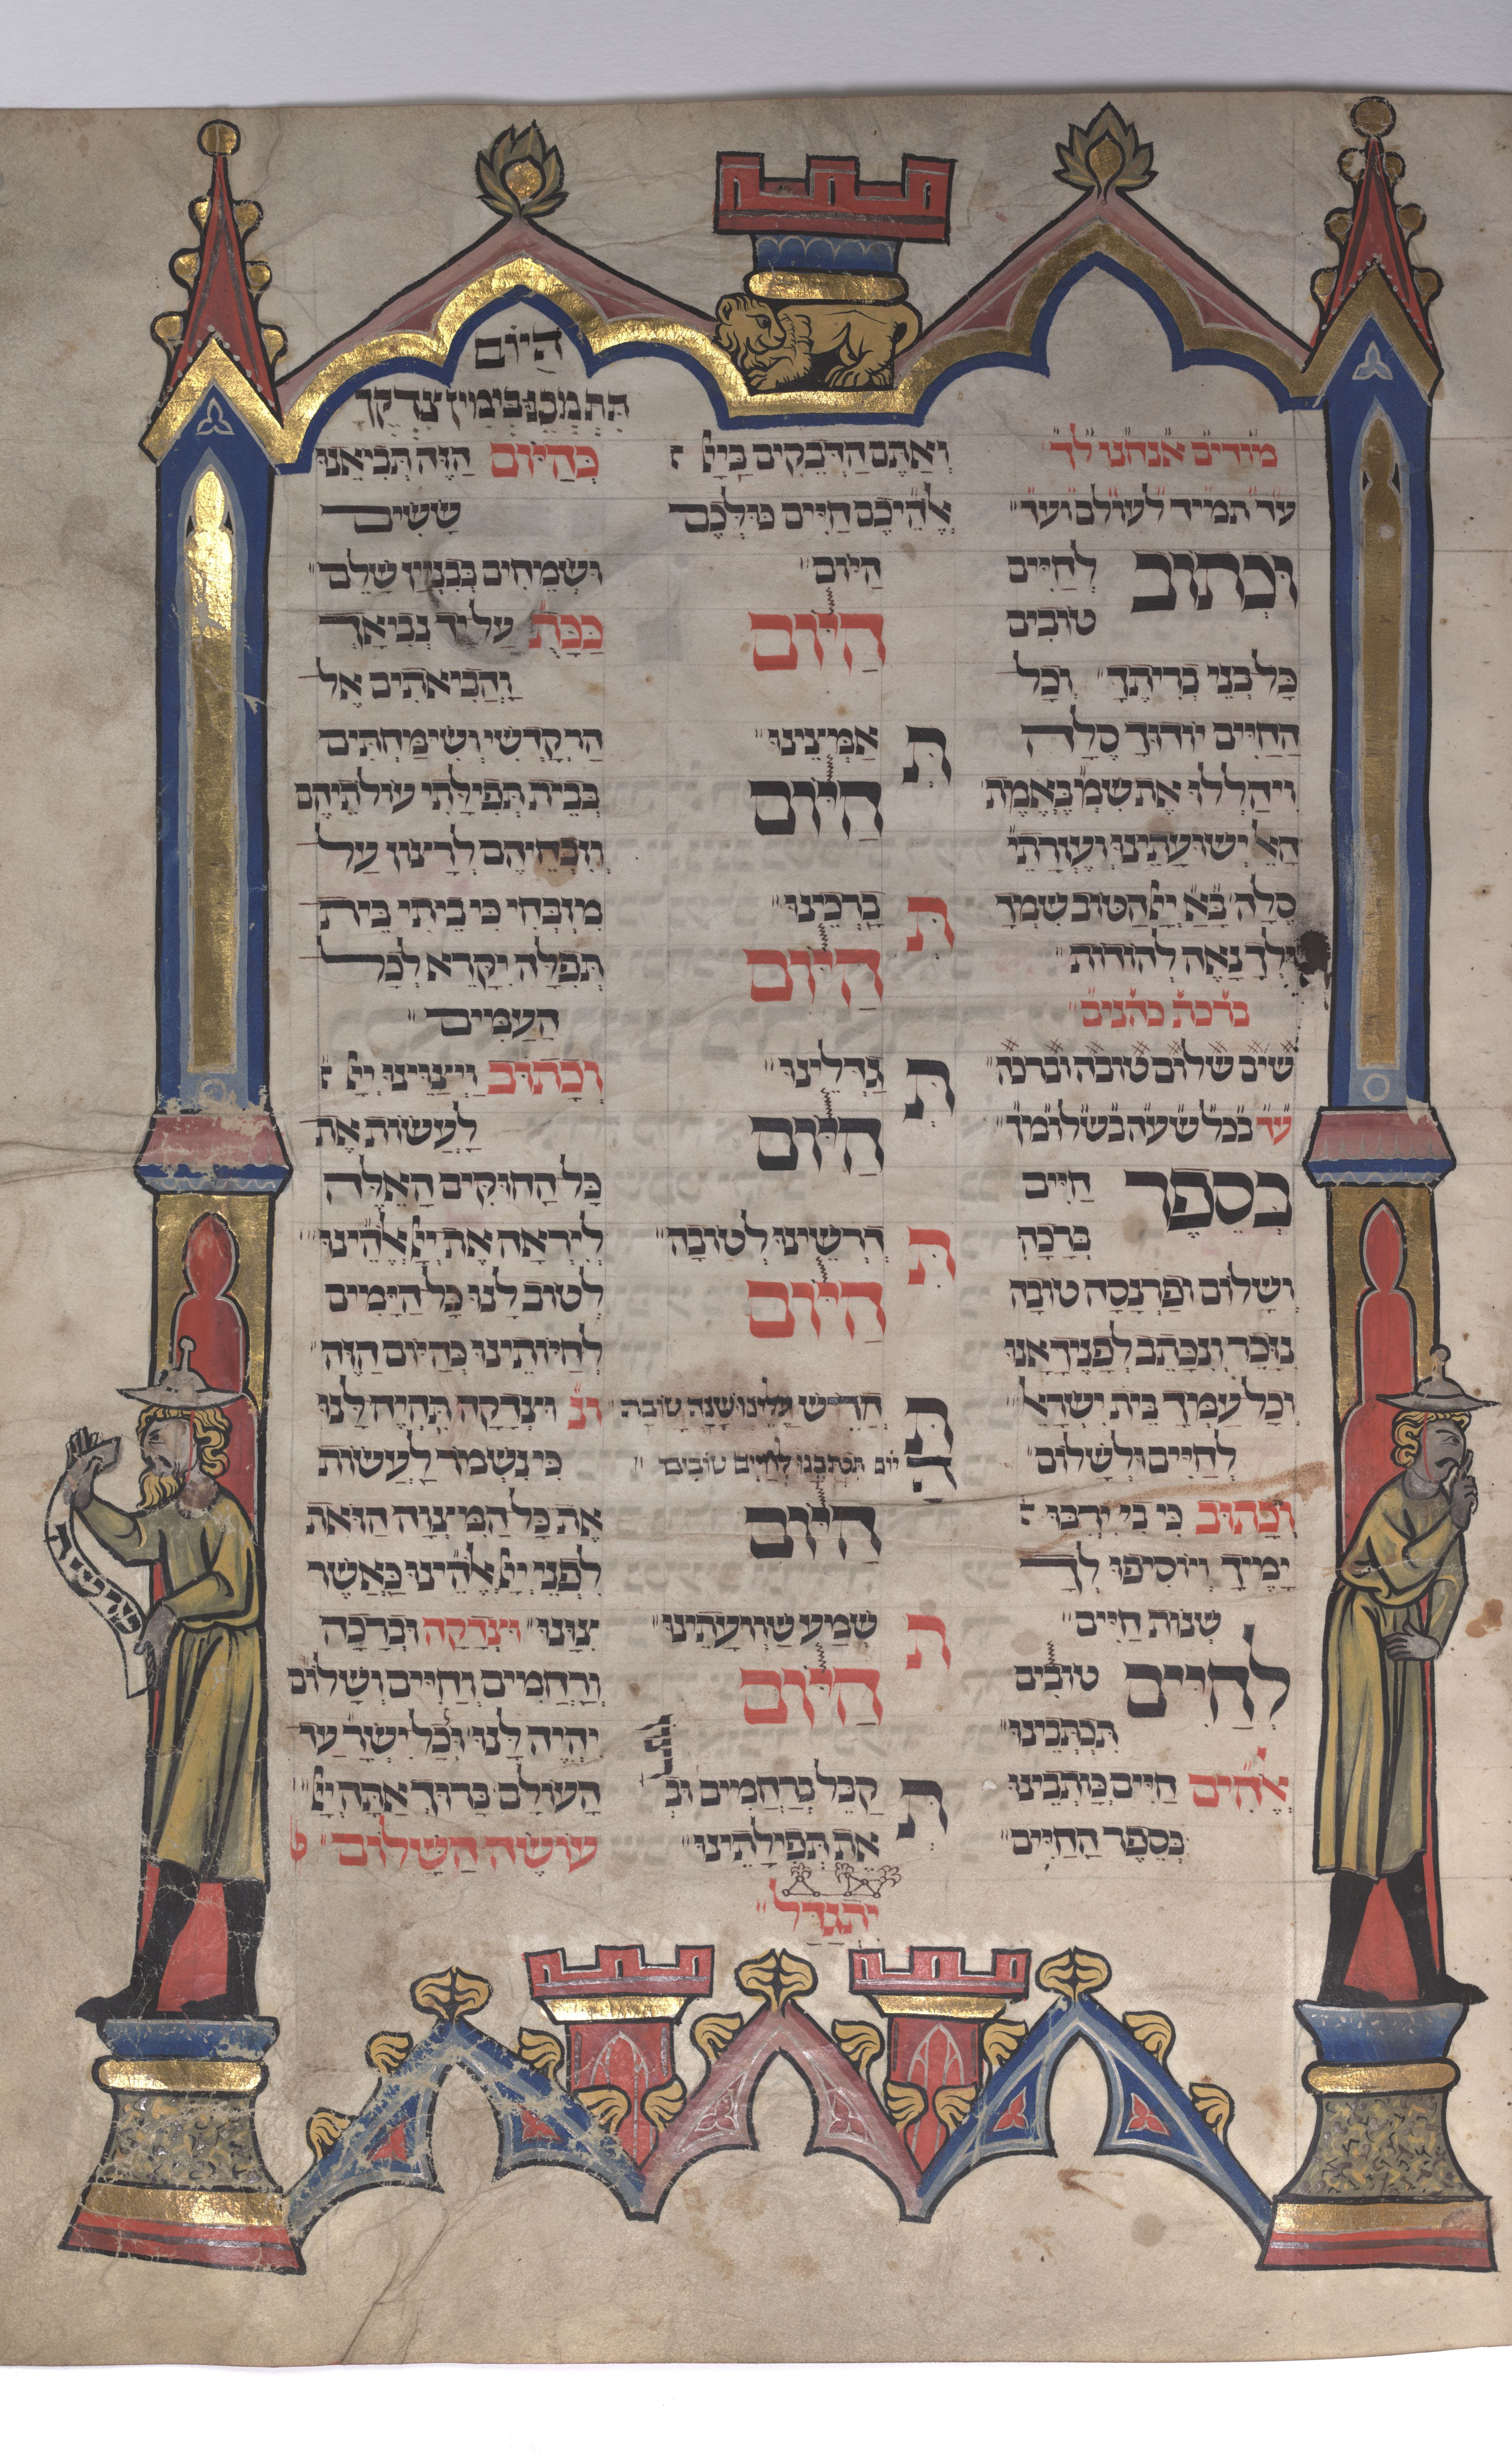 מודים אנחנו לך
עד תמיד לעולם ועד
וכתוב לחיים
טובים
כל בני בריתך וכל
החיים יודוך סלה
ויהללו את שמך באמת
האל ישועתינו ועזרתי
סלה הטוב שמך
ולך נאה להודות
ברכת כהנים
שים שלום טובה וברכה
עד בכל שעה בשלומיך
בספר חיים
ברכה
ושלום ופרנסה טובה
נזכר ונכתב לפניך אנו
וכל עמיך בית ישראל
לחיים ולשלום
וכתוב כי בי ירבו
ימיך ויוסיפו לך
שנות חיים
לחיים טובים
תכתבינו
אלהים חיים כותבינו
בספר החיים
ואתם הדבקים ביי
אלהיכם חיים כולכם
היום
היום
ת אמצינו
היום
ת ברכינו
היום
ת גדלינו
היום
ת דרשינו לטובה
היום
ת חדש עלינו שנה טובה
ה יום תכתבנו לחיים טובים
היום
ת שמע שוועתינו
היום
ת קבל ברחמים וב
את תפילתינו
יתגדל
היום
תתמכנו בימין צדקך
כהיום הזה תביאנו
ששים
ושמחים בבנין שלם
ככת על יד נביאך
והביאתים אל
הר קדשי ושימחתים
בבית תפילתי עולתיהם
וזבחיהם לרצון על
מזבחי כי ביתי בית
תפלה יקרא לכל
העמים
וכתוב ויצוינו יי
לעשות את
כל החוקים האלה
ליראה את יי אלהינו
לטוב לנו כל הימים
לחיותינו כהיום הזה
וג וצדקה תהיה לנו
כי נשמר לעשות
את כל המצוה הזאת
לפני יי אלהינו כאשר
צונו וצדקה וברכה
ורחמים וחיים ושלום
יהיה לנו ולכל ישר עד
העולם ברוך אתה יי
עושה השלום